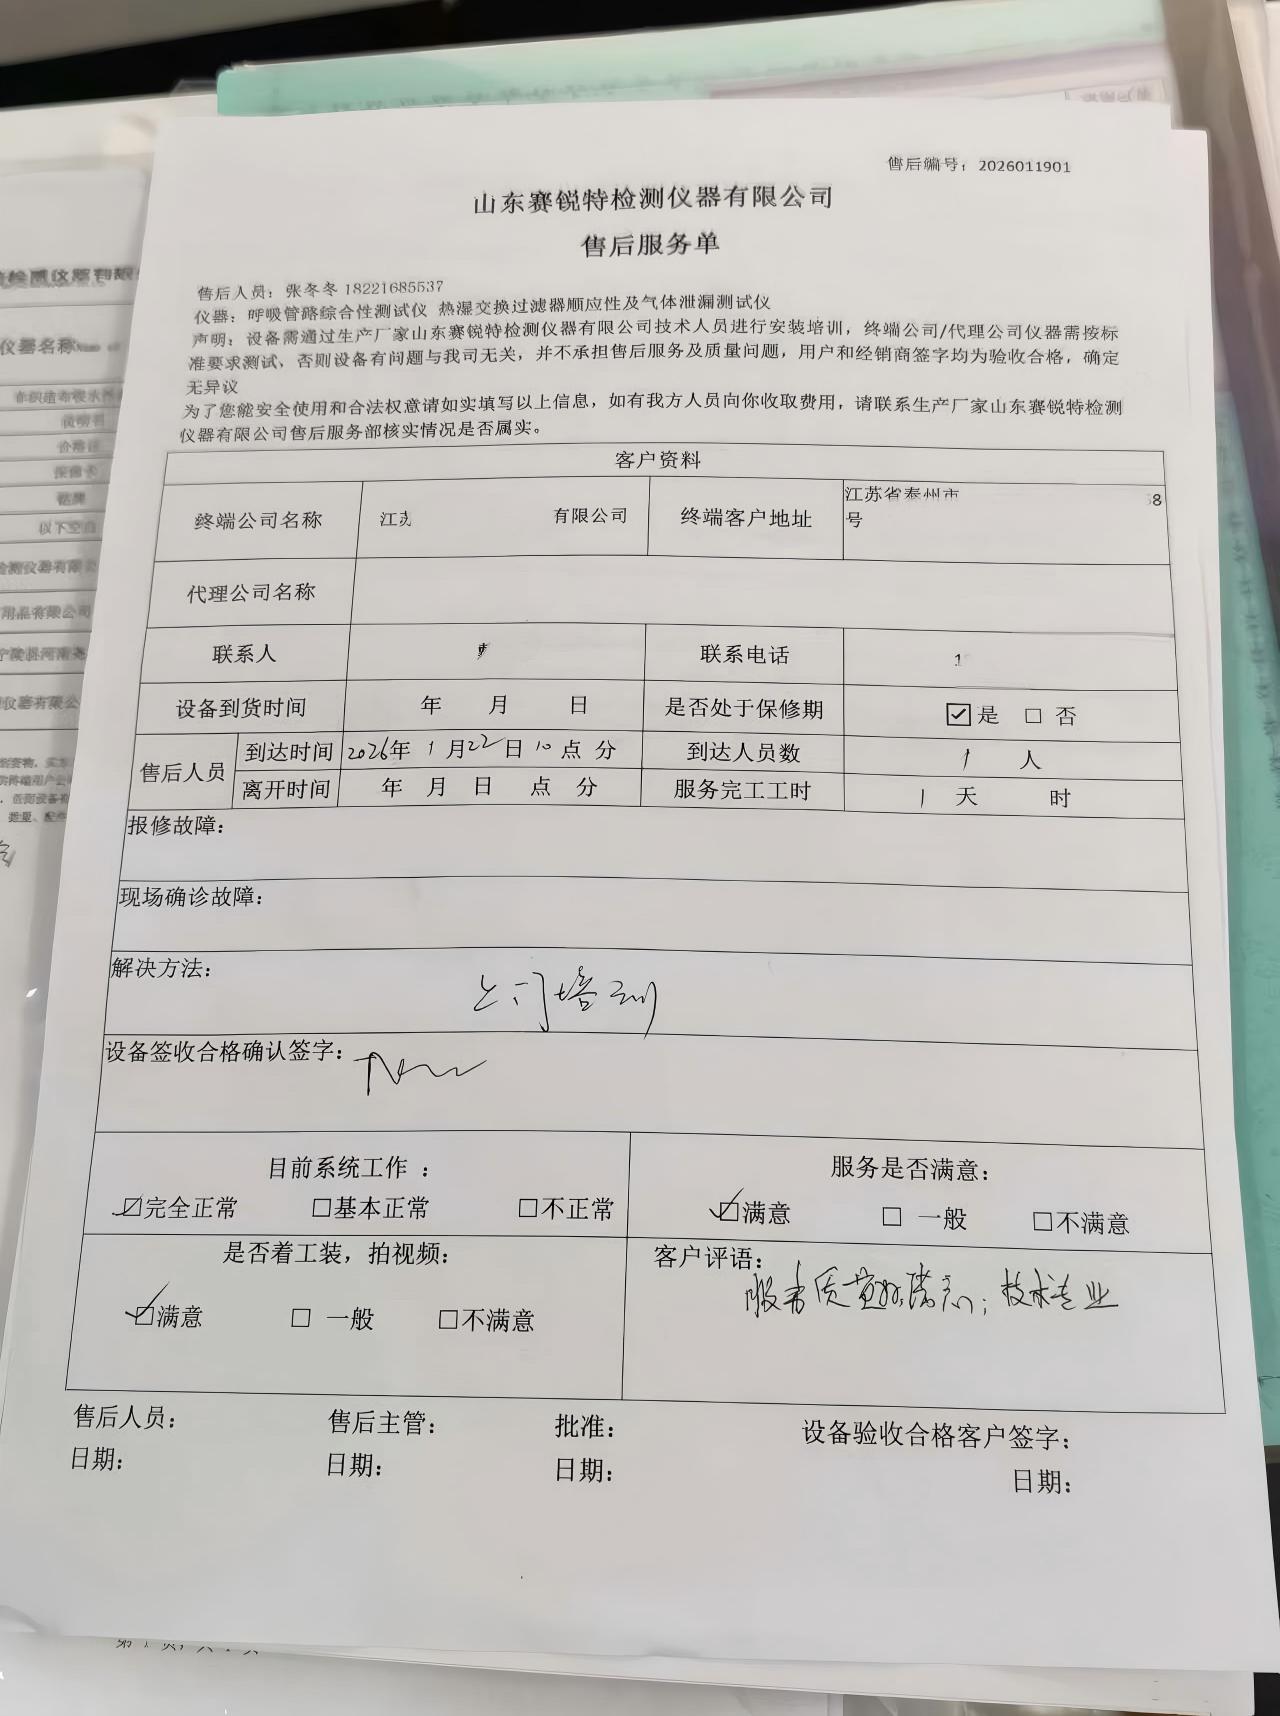 售后编号：2026011901
山东赛锐特检测仪器有限公司
售后服务单
售后人员：张冬冬 18221685537
仪器：呼吸管路综合性测试仪 热湿交换过滤器顺应性及气体泄漏测试仪
声明：设备需通过生产厂家山东赛锐特检测仪器有限公司技术人员进行安装培训，终端公司/代理公司仪器需按标
准要求测试，否则设备有问题与我司无关，并不承担售后服务及质量问题，用户和经销商签字均为验收合格，确定
无异议
为了您能安全使用和合法权意请如实填写以上信息，如有我方人员向你收取费用，请联系生产厂家山东赛锐特检测
仪器有限公司售后服务部核实情况是否属实。
客户资料
终端公司名称 江苏 有限公司 终端客户地址 江苏省泰州市 8
号
代理公司名称
联系人 联系电话 1
设备到货时间 年 月 日 是否处于保修期 ☑是 □ 否
售后人员 到达时间 2026年 1月22日10点 分 到达人员数 1 人
离开时间 年 月 日 点 分 服务完工工时 1 天 时
报修故障：
现场确诊故障：
解决方法：
上门培训
设备签收合格确认签字：
目前系统工作 ： 服务是否满意：
☑完全正常 □基本正常 □不正常 ☑满意 □ 一般 □不满意
是否着工装，拍视频： 客户评语：
服务质量 ；技术专业
☑满意 □ 一般 □不满意
售后人员： 售后主管： 批准： 设备验收合格客户签字：
日期： 日期： 日期： 日期：
仪器名称
价格
以下空白
检测仪器有限公
用品有限公司